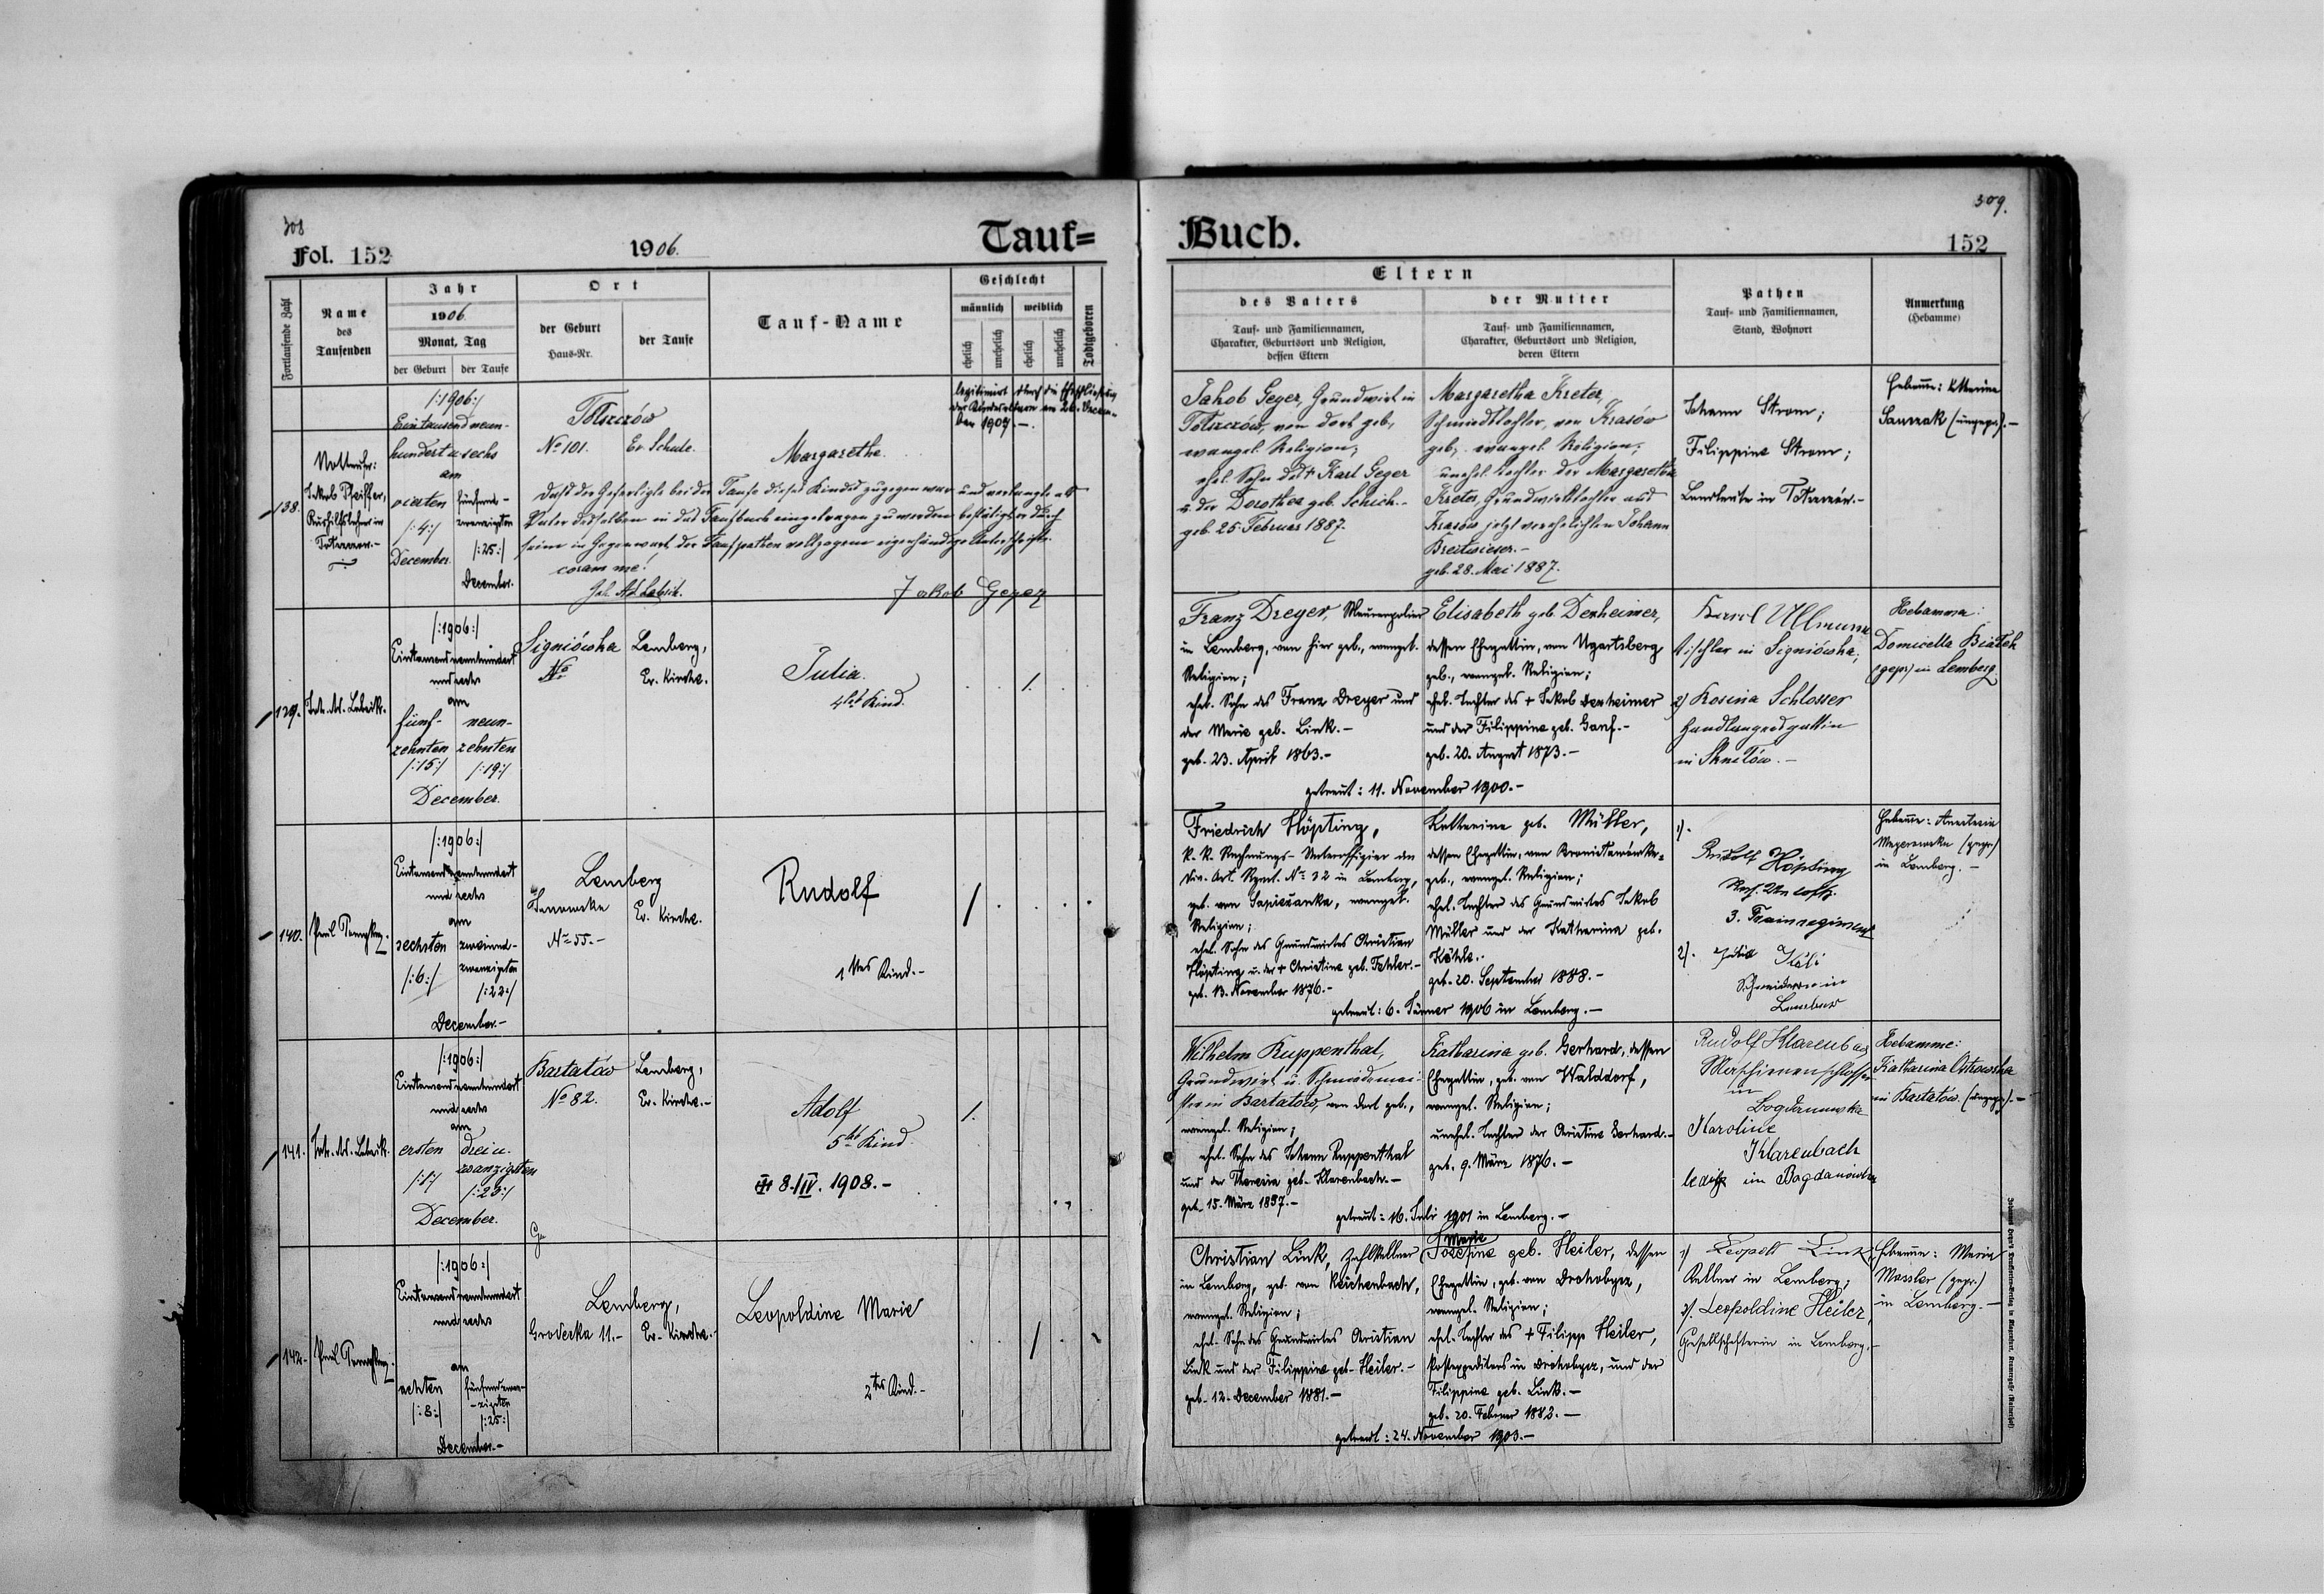 308
Fol. 152
1906.
Tauf=
Fortlaufende Zahl
Name
des
Taufenden
Jahr
1906
Monat, Tag
der Geburt
der Taufe
Ort
der Geburt
Haus-Nr.
der Taufe
Tauf-Name
Geschlecht
männlich
weiblich
ehelich
unehelich
ehelich
unehelich
Todtgeboren
138.
Nottaufer:
Jakob Pfeiffer,
Aushilfslehrer in
/:1906:/
Ein tausend neun-
hundert u. sechs
am
vierten
/:4:/
December.
fünfund-
zwanzigsten
/:25:/
December.
No 101.
Ev. Schule.
Margarethe.
legitimiert durch die Eheschließung
der Kindeseltern am 26. Decem-
ber 1907.-
Daß der Gefertigte bei der Taufe dieses Kindes zugegen war und verlangte als
Vater desselben in das Taufbuch eingetragen zu werden bestätigt er durch
seine in Gegenwart der Taufpathen vollzogene eigenhändige Unterschrift.
coram me:
Jakob Geyer
139.
/:1906:/
Eintausendneunhundert
und sechs
am
fünf-
zehnten
/:15:/
neun-
zehnten
/:19:/
December.
Signiówka
No
Lemberg,
Ev. Kirche.
Julia.
4tes Kind.
1.
140.
/:1906:/
Eintausendneunhundert
und sechs
am
sechsten
/:6:/
zweiund-
zwanzigsten
/:22:/
December.-
Lemberg
Janowska
No 55.-
Ev. Kirche.
Rudolf
1tes Kind.-
141.
/:1906:/
Eintausendneunhundert
und sechs
am
ersten
/:1:/
drei u.
zwanzigsten
/:23:/
December.
Bartatów
No 82.
Lemberg,
Ev. Kirche.-
Adolf
5tes Kind.
8./IV. 1908.-
1.
142.-
/:1906:/
Eintausendneunhundert
und sechs
am
achten
/:8:/
fünfundzwan-
zigsten
/:25:/
December.-
Lemberg,
Grodecka 11.-
Ev. Kirche.
Leopoldine Marie
2tes Kind.-
309.
Buch.
152
Eltern
des Vaters
Tauf- und Familiennamen,
Charakter, Geburtsort und Religion,
dessen Eltern
der Mutter
Tauf- und Familiennamen,
Charakter, Geburtsort und Religion,
deren Eltern
Pathen
Tauf- und Familiennamen,
Stand, Wohnort
Anmerkung
(Hebamme)
Jakob Geyer, Grundwirt in
von dort geb.,
evangel. Religion;
ehel. Sohn des † Karl Geyer
u. der Dorothea geb. Schick.-
geb. 25. Februar 1887.
Margaretha Kreter,
Schmiedtochter, von Krasów
geb., evangel. Religion;
unehel. Tochter der Margaretha
Kreter, Grundwirtstochter aus
Krasów, jetzt verehelichten Johann
Breitwieser.-
geb. 28. Mai 1887.
Johann Strom;
Filippine Strom;
Landleute in
Hebamme: Katharina
(ungepr.).-
Franz Dreyer, Maurerpolier
in Lemberg, von hier geb., evangel.
Religion;
ehel. Sohn des Franz Dreyer und
der Marie geb. Link.-
geb. 23. April 1863.-
Elisabeth geb. Dexheimer,
dessen Ehegattin, von Ugartsberg
geb., evangel. Religion;
ehel. Tochter des † Jakob Dexheimer
und der Filippine geb. Ganf.-
geb. 20. August 1873.-
getraut: 11. November 1900.-
Karol Ullmann
Tischler in Signiówka;
2) Rosina Schlosser
Handlungsgattin
Hebamme:
Domicella
(gepr.) in Lemberg
Friedrich Höpting,
k. k. Rechnungs-Unteroffizier des
Div. Art. Rgmt. No 32 in Lemberg,
geb. von Sapiezanka, evangel.
Religion;
ehel. Sohn des Grundwirtes Christian
Höpting u. der † Christine geb. Fehler.-
geb. 13. November 1876.-
Katharina geb. Müller,
dessen Ehegattin, von
geb., evangel. Religion;
ehel. Tochter des Grundwirtes Jakob
Müller und der Katharina geb.
Köhle.-
geb. 20. September 1888.-
getraut: 6. Jänner 1906 in Lemberg.-
1).
Rudolf Höpting
3. Trainregiment
2).
Lemberg
Hebamme: Anastasia
(gepr.)
in Lemberg.-
Wilhelm Ruppenthal,
Grundwirt u. Schmiedemei-
ster in Bartatów, von dort geb.,
evangel. Religion;
ehel. Sohn des Johann Ruppenthal
und der Theresia geb. Klarenbach.-
Katharina geb. Gerhard, dessen
Ehegattin, geb. von Walddorf,
evangel. Religion;
unehel. Tochter der Christine Gerhard.-
geb. 9. März 1876.-
getraut: 16. Juli 1901 in Lemberg.-
Rudolf Klarenbach
Maschinenschlosser
in
Bogdanówka
Karoline
Klarenbach
ledig in Bogdanówka
Hebamme:
Katharina Ostrowska
in Bartatów. (ungepr.).-
Christian Link, Zahlkellner
in Lemberg, geb. von Reichenbach,
evangel. Religion;
ehel. Sohn des Grundwirtes Christian
Link und der Filippine geb. Heiler.-
geb. 12. December 1881.-
Marie
Josefine geb. Heiler, dessen
Ehegattin, geb. von Drohobycz,
evangel. Religion;
ehel. Tochter des † Filipp Heiler,
Postexpeditors in Drohobycz, und der
Filippine geb. Link.-
geb. 20. Februar 1882.-
getraut: 24. November 1903.-
1) Leopold Link
Kellner in Lemberg;
2). Leopoldine Heiler,
Gesellschafterin in Lemberg.-
Hebamme: Maria
Massler (gepr.)
in Lemberg.-